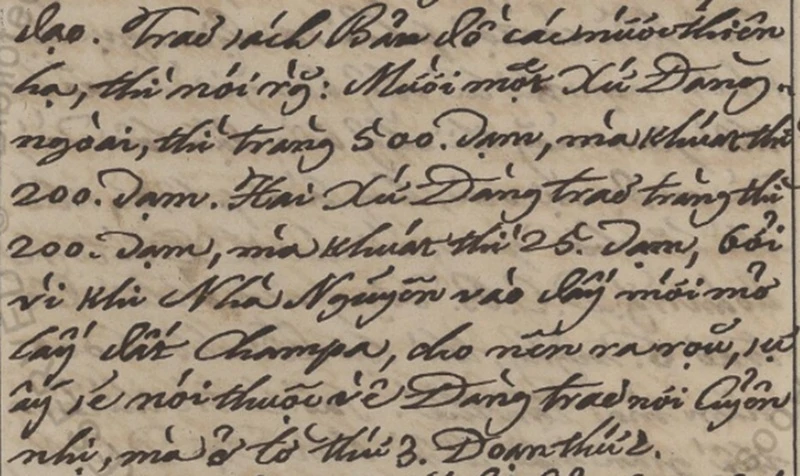 đạo. Traõ sách Bản đồ các nước thiên
hạ, thì nói rằ̃: Mười một Xứ Đàng-
ngoài, thì tràng 500. dạm, mà khoát thì
200. dạm. Hai Xứ Đàng traõ tràng thì
200. dạm, mà khoát thì 25. dạm, bởi
vì khi Nhà Nguyễn vào đấy mới mở
lấy đất Champa, cho nên ra rọ̃, sự
ấy sẽ nói thuọ̃ về Đàng traõ nói Cuyển
nhị, mà ở tờ thứ 3. Đoạn thứ 2.